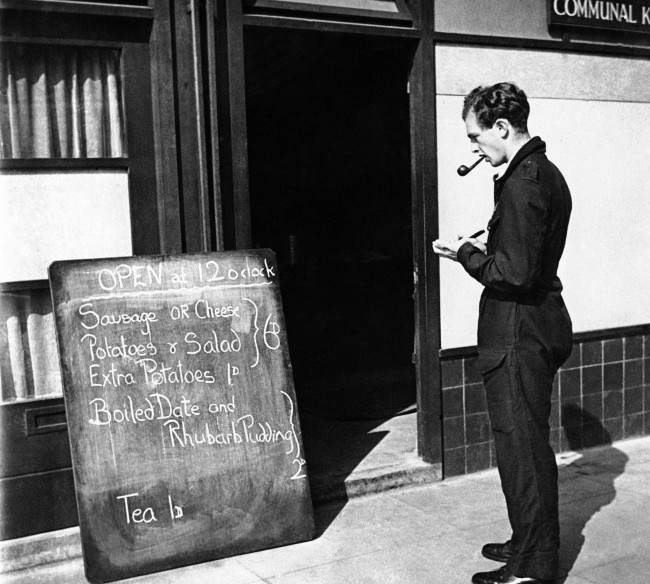 COMMUNAL K
OPEN at 12 o'clock
Sausage OR Cheese
Potatoes & Salad } 6D
Extra Potatoes 1D
Boiled Date and
Rhubarb Pudding }
2D
Tea 1D